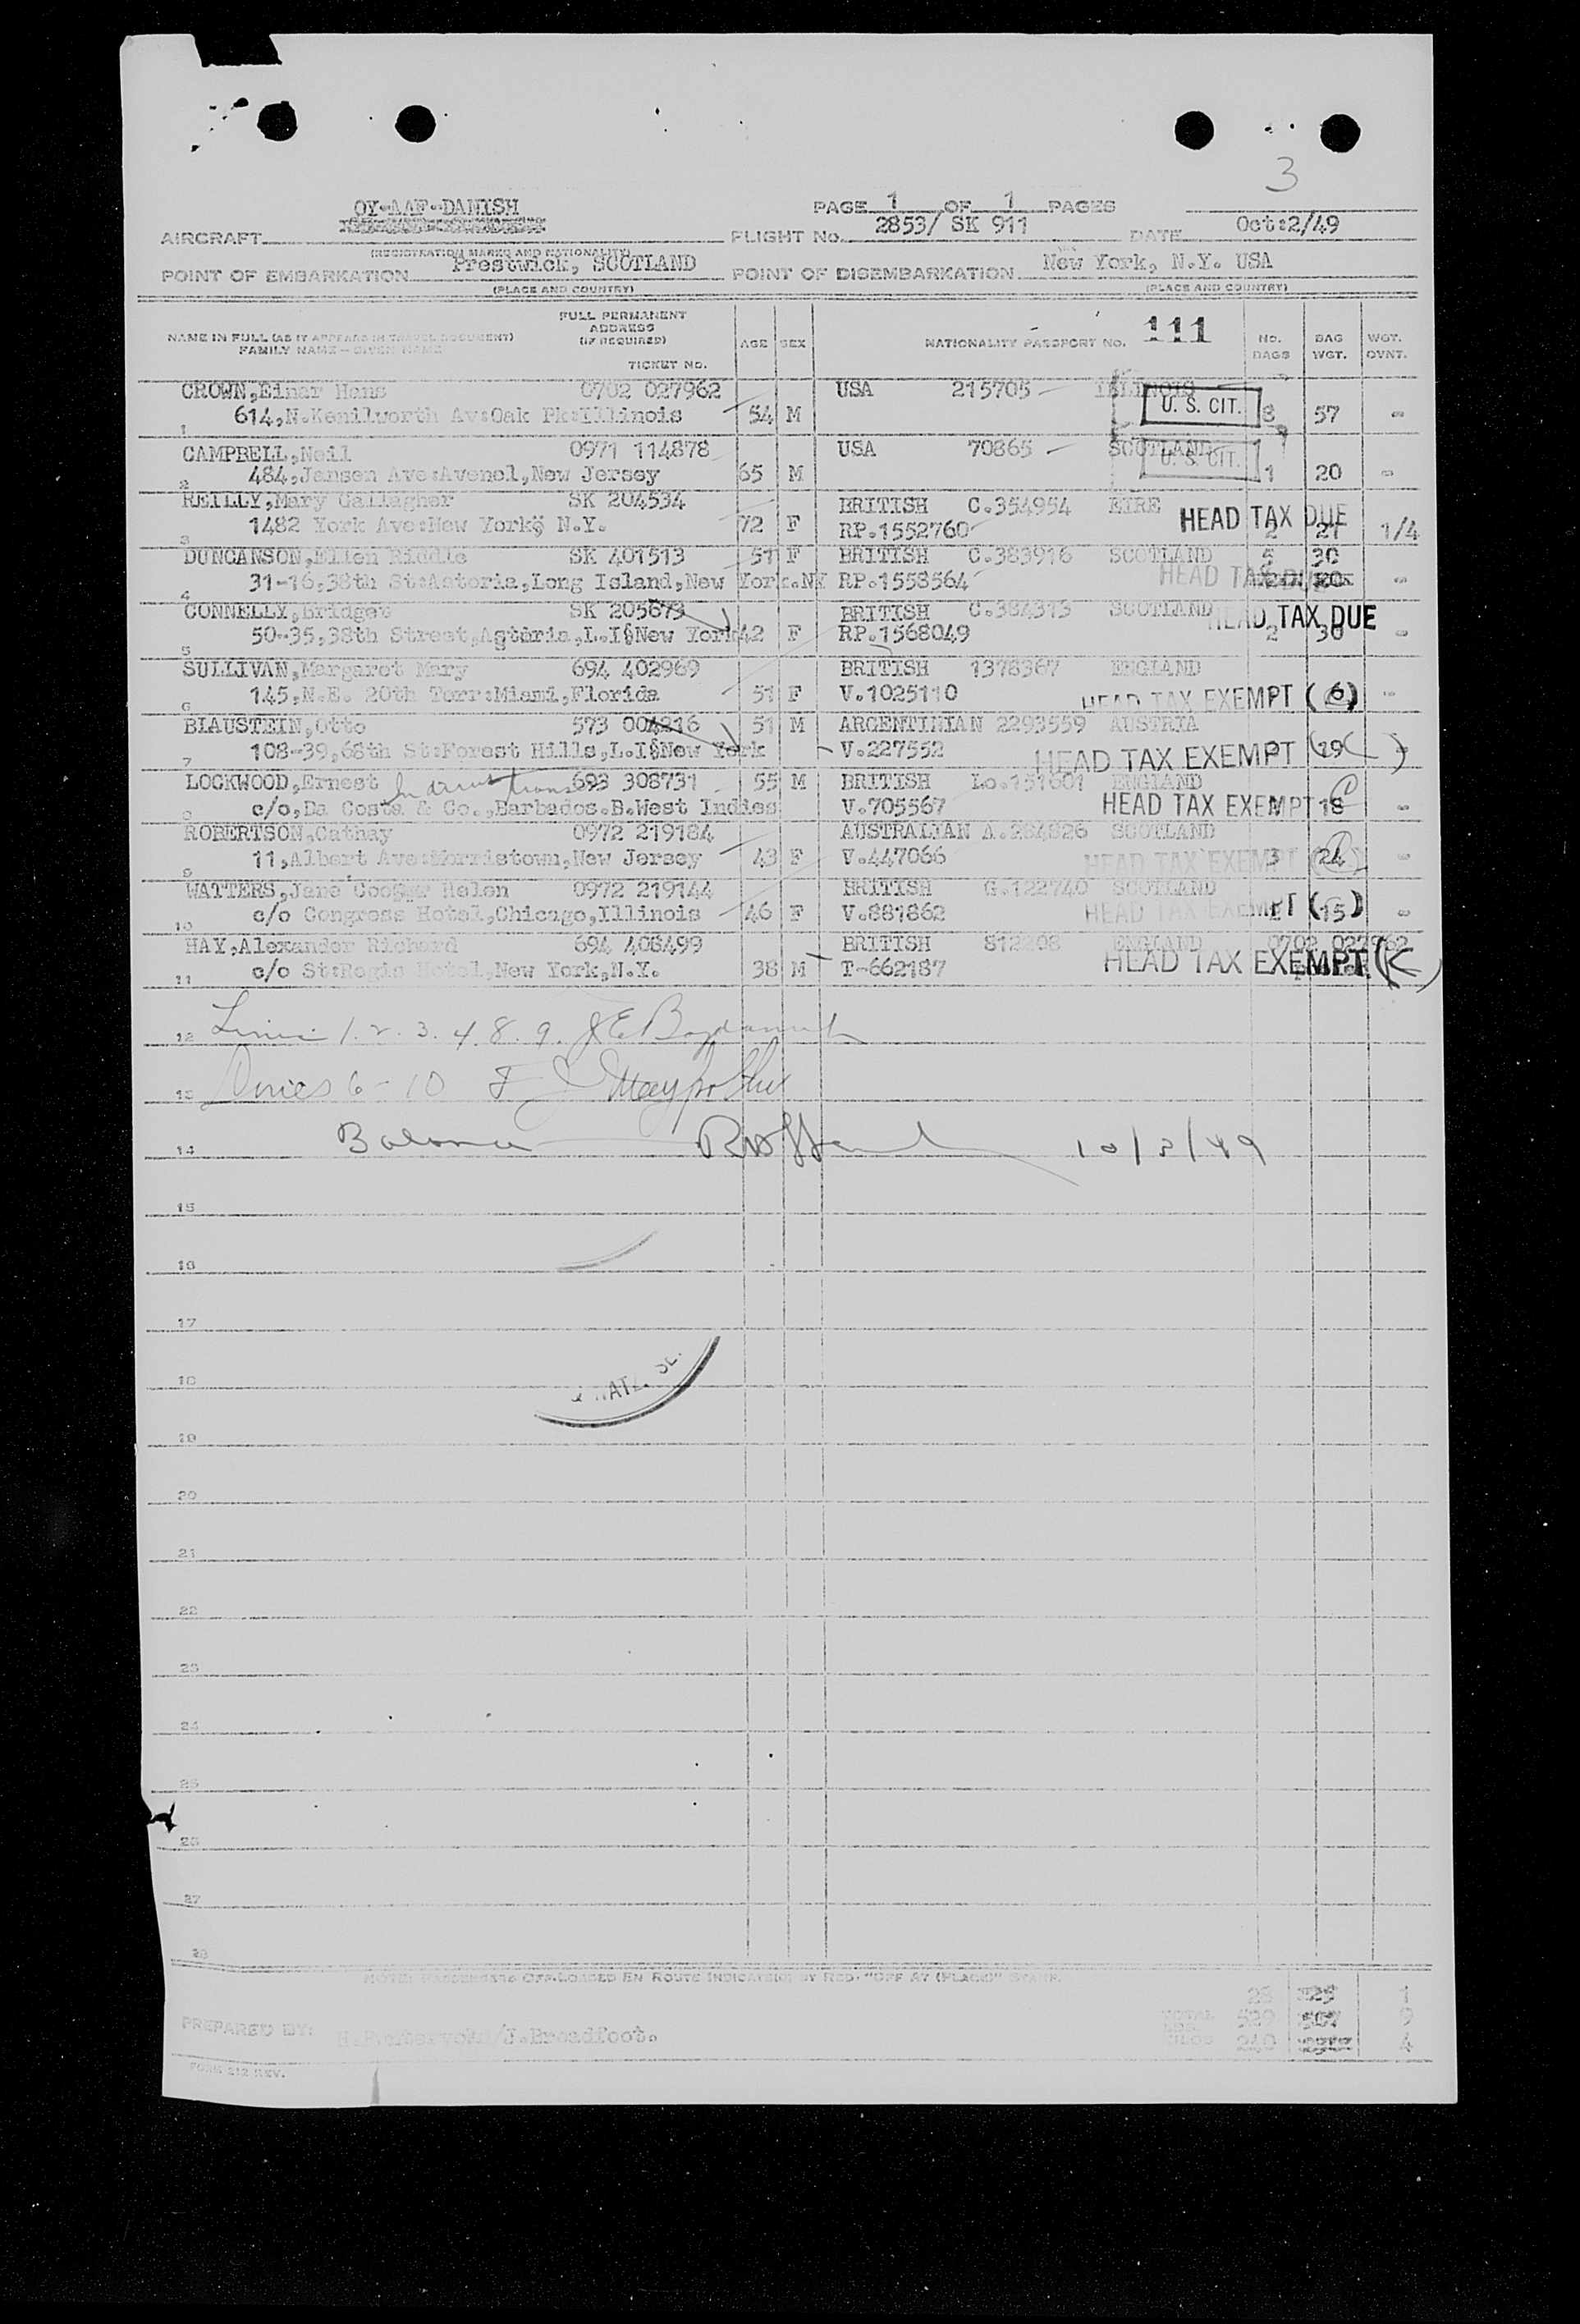 3
OY-AAF-DANISH
PAGE 1 OF 1 PAGES
AIRCRAFT FLIGHT No. 2853/ SK 911 DATE Oct:2/49
(REGISTRATION MARKS AND NATIONALITY)
POINT OF EMBARKATION Prestwick, SCOTLAND POINT OF DISEMBARKATION New York, N.Y. USA
(PLACE AND COUNTRY) (PLACE AND COUNTRY)
NAME IN FULL (AS IT APPEARS IN TRAVEL DOCUMENT) FAMILY NAME - GIVEN NAME FULL PERMANENT ADDRESS (IF REQUIRED) TICKET No. AGE SEX NATIONALITY PASSPORT No. 111 No. BAGS BAG WGT. WGT. OVNT.
CROWN,Einar Hans 0702 027962 USA 215705 ILLINOIS
1 614,N.Kenilworth Av:Oak Pk:Illinois 54 M U. S. CIT. 3 57 -
CAMPBELL,Neil 0971 114878 USA 70865 SCOTLAND
2 484,Jensen Ave:Avenel,New Jersey 65 M U. S. CIT. 1 20 -
REILLY,Mary Gallagher SK 204534 BRITISH C.354954 EIRE
3 1482 York Ave:New York, N.Y. 72 F RP.1552760 HEAD TAX DUE 2 21 1/4
DUNCANSON,Ellen Riddle SK 401513 51 F BRITISH C.383916 SCOTLAND 5 30
4 31-16,38th St:Astoria,Long Island,New York.NY RP.1558564 HEAD TAX DUE -
CONNELLY,Bridget SK 205673 BRITISH C.384313 SCOTLAND
5 50-35,38th Street,Astoria,L.I:New York 42 F RP.1568049 HEAD TAX DUE 2 30 -
SULLIVAN,Margaret Mary 694 402969 BRITISH 1378367 ENGLAND
6 145,N.E. 20th Terr:Miami,Florida 51 F V.1025110 HEAD TAX EXEMPT ( ) -
BLAUSTEIN,Otto 573 004216 51 M ARGENTINIAN 2293559 AUSTRIA
7 108-39,68th St:Forest Hills,L.I:New York V.227552 HEAD TAX EXEMPT ( 29 ) -
LOCKWOOD,Ernest 693 308731 55 M BRITISH Lo.151601 ENGLAND
8 c/o,Da Costa & Co.,Barbados.B.West Indies V.705567 HEAD TAX EXEMPT 18 -
ROBERTSON,Cathay 0972 219184 AUSTRALIAN A.284826 SCOTLAND
9 11,Albert Ave:Morristown,New Jersey 43 F V.447066 HEAD TAX EXEMPT 3 24 -
WATTERS,Jane Helen 0972 219144 BRITISH G.122740 SCOTLAND
10 c/o Congress Hotel,Chicago,Illinois 46 F V.881862 HEAD TAX EXEMPT ( 15 ) -
HAY,Alexander Richard 694 408499 BRITISH 812208 ENGLAND 0702 027962
11 c/o St:Regis Hotel,New York,N.Y. 38 M T-662187 HEAD TAX EXEMPT
12 1. 2. 3. 4. 8. 9.
13 6-10
14 10/2/49
15
16
17
18
19
20
21
22
23
24
25
26
27
28
NOTE: PASSENGERS OFF-LOADED EN ROUTE INDICATED BY RED "OFF AT (PLACE)" STAMP.
1
PREPARED BY: J.Broadfoot. TOTAL 529 507 9
240 4
FORM 212 REV.